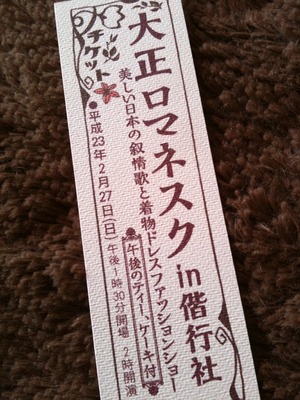 大正ロマネスク in 偕行社
美しい日本の叙情歌と着物ドレスファッションショー
午後のティー、ケーキ付
チケット
●平成23年2月27日(日)午後1時30分開場 2時開演